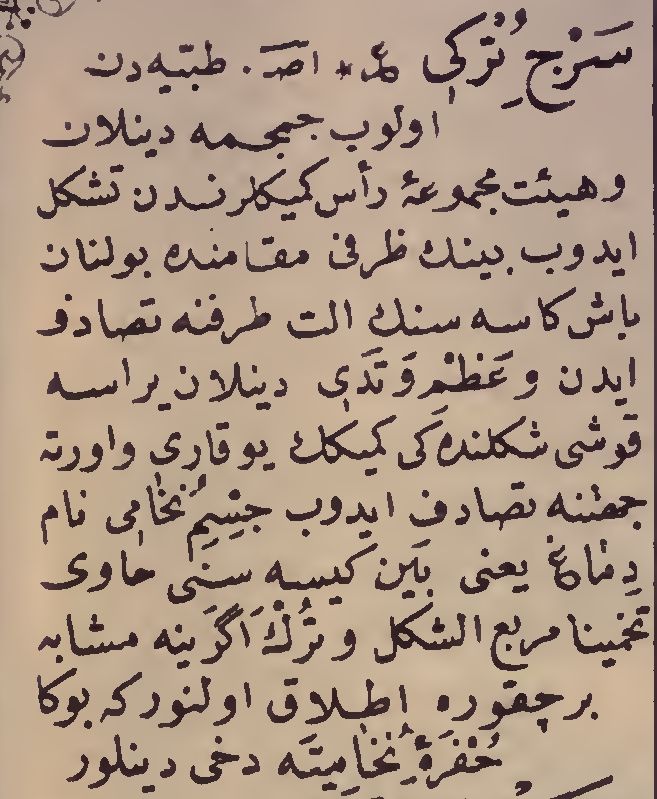 سَرْجِ تُرْكِی عم * اصـ . طبیّه دن
اولوب جمجمه دینلان
وهیئت مجموعهٔ رأس كمیكلرندن تشكل
ایدوب بینك ظرفی مقامنده بولنان
باش كاسه سنك الت طرفنه تصادف
ایدن وعَظْمِ وَتَدَی دینلان یراسه
قوشی شكلنده كی كمیكك یوقاری واورته
جهتنه تصادف ایدوب جِسْمِ نُخَامِی نام
دِمَاغ یعنی بَین كیسه سنی حاوی
تخمینا مربع الشكل وتُرْك اَگَرینه مشابه
برچقوره اطلاق اولنوركه بوكا
حُفْرَهٔ نُخَامِیَّه دخی دینلور